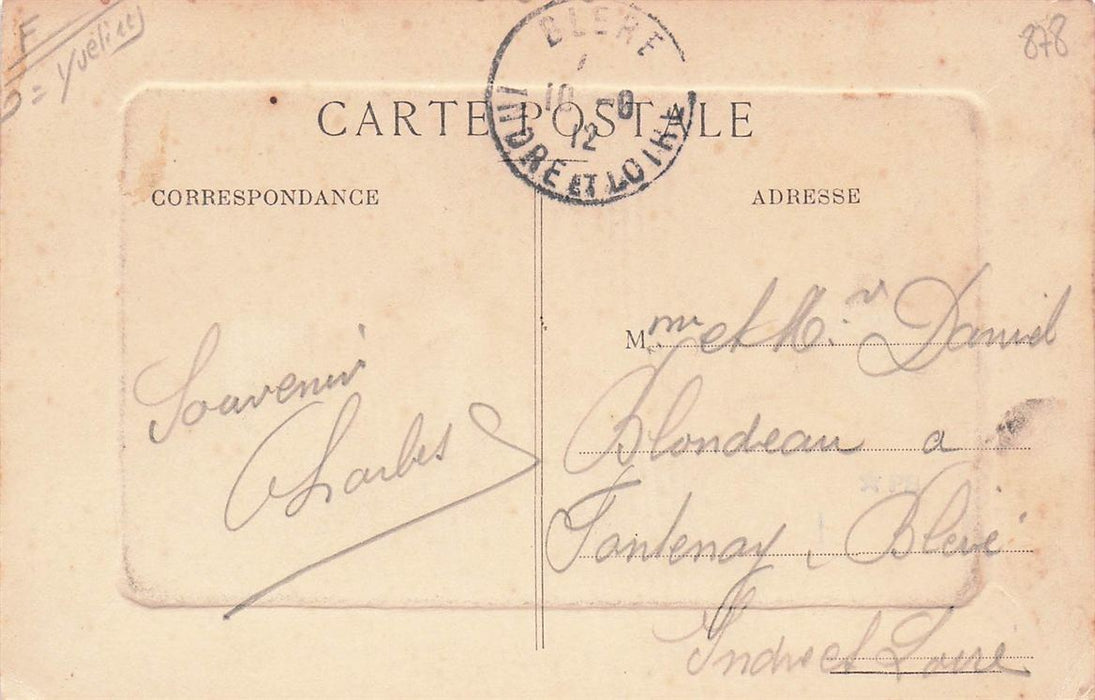 F
= Yvelines
878
BLERE
10 -8
12
INDRE ET LOIRE
CARTE POSTALE
CORRESPONDANCE
ADRESSE
Souvenir
Charles
Mme et Mr Daniel
Blondeau a
Fontenay, Bléré
Indre et Loire